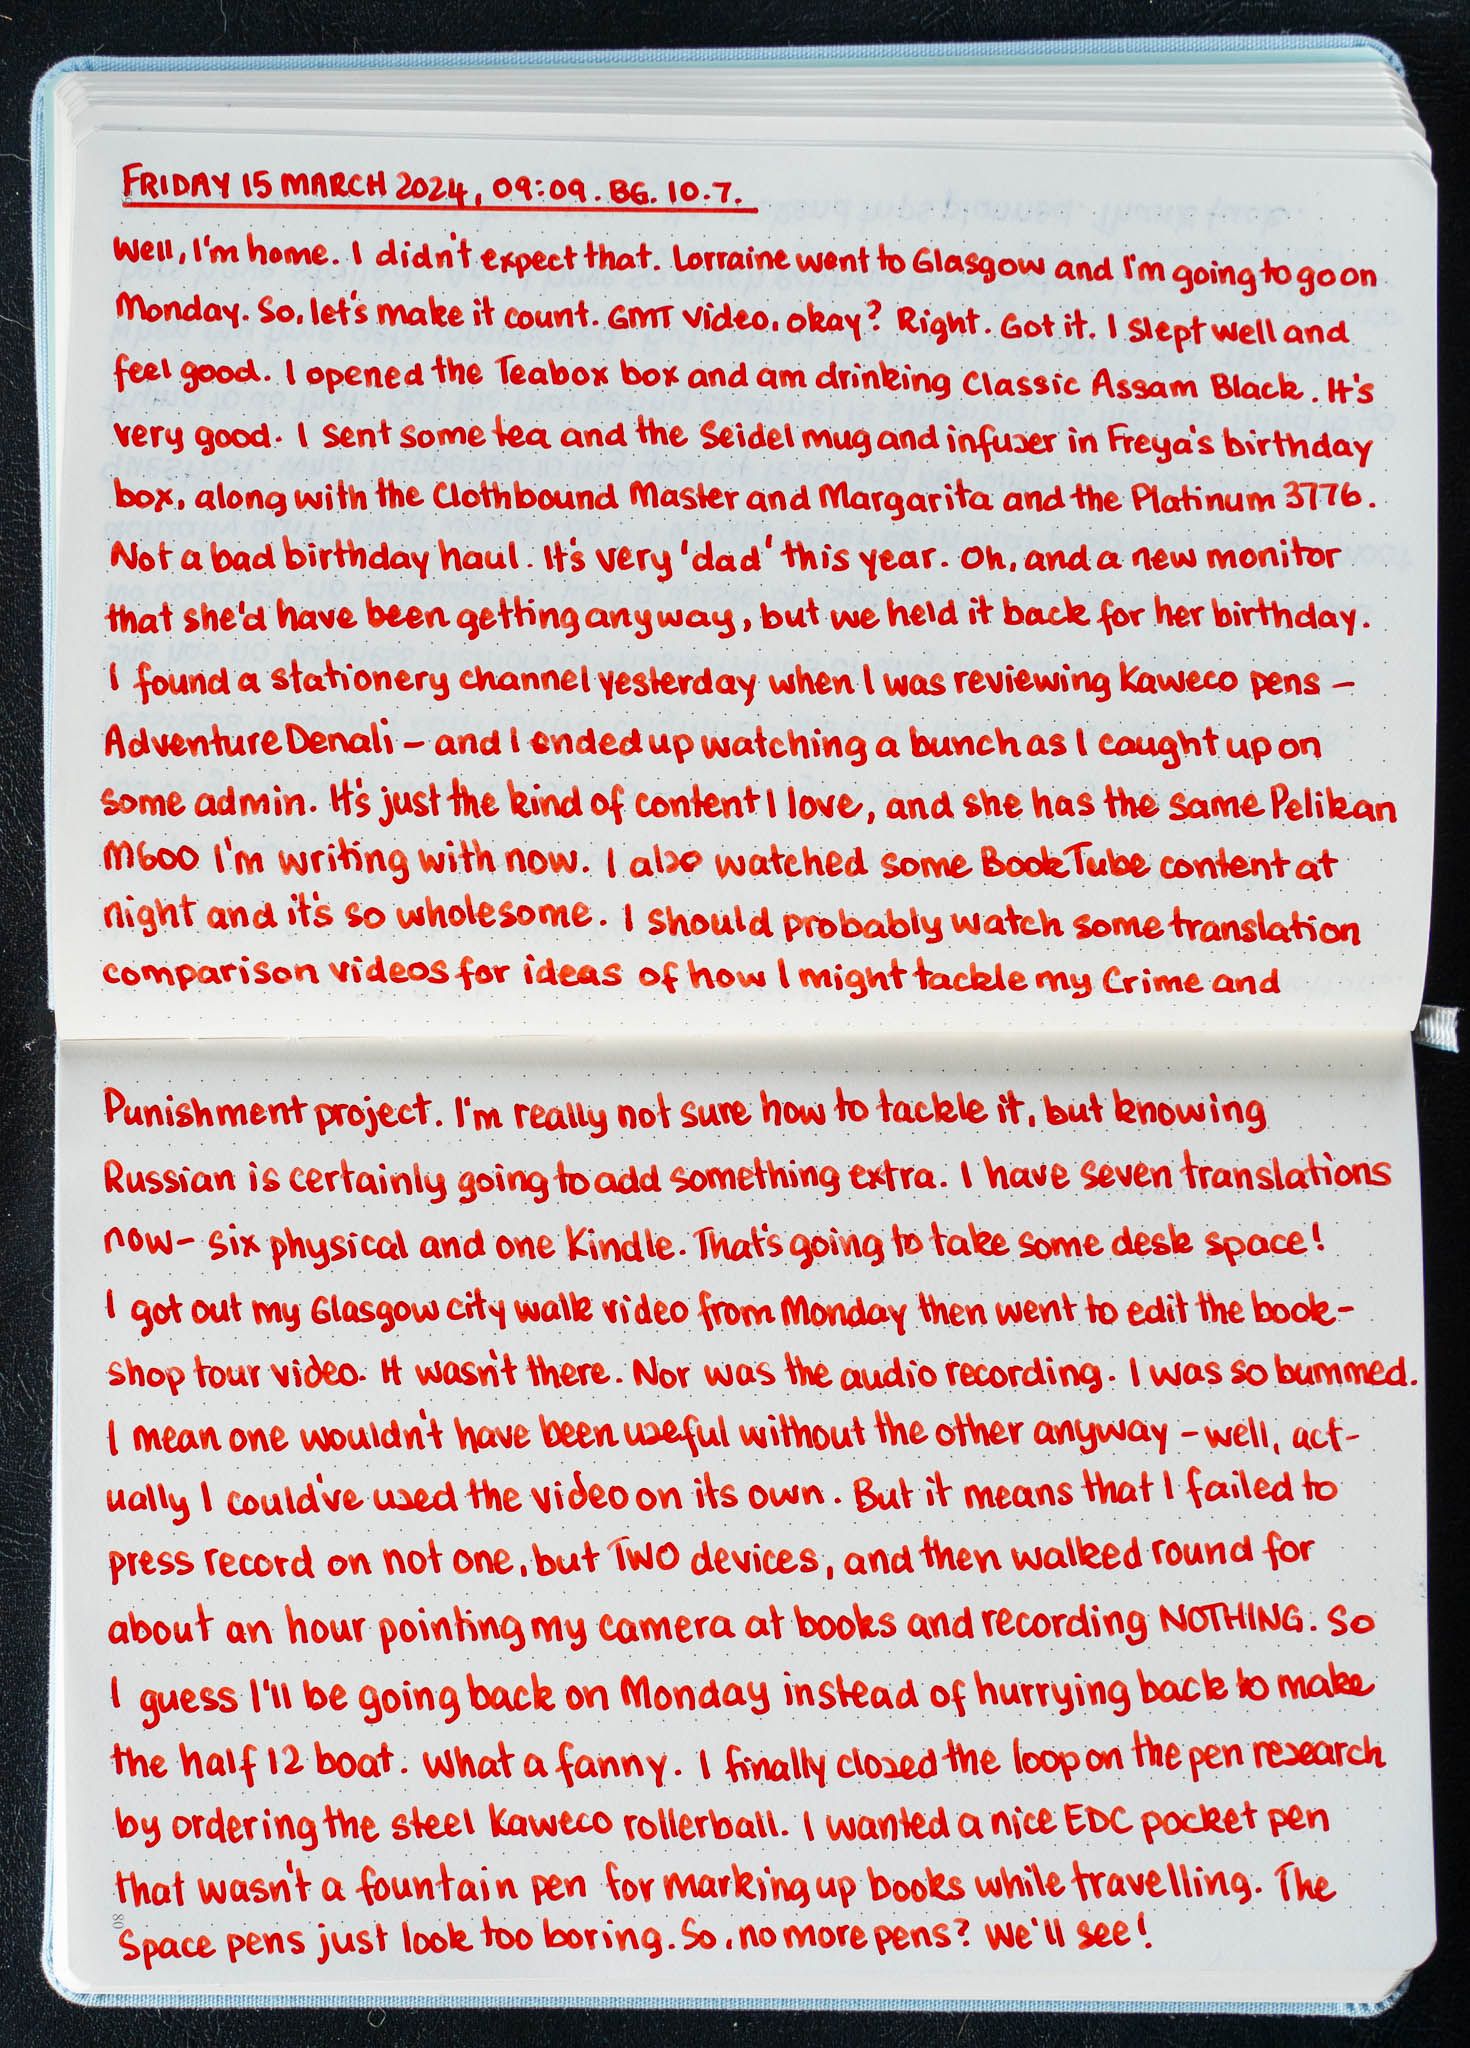 FRIDAY 15 MARCH 2024, 09:09. BG. 10.7.
Well, I'm home. I didn't expect that. Lorraine went to Glasgow and I'm going to go on
Monday. So, let's make it count. GMT video, okay? Right. Got it. I slept well and
feel good. I opened the Teabox box and am drinking Classic Assam Black. It's
very good. I sent some tea and the Seidel mug and infuser in Freya's birthday
box, along with the Clothbound Master and Margarita and the Platinum 3776.
Not a bad birthday haul. It's very 'dad' this year. Oh, and a new monitor
that she'd have been getting anyway, but we held it back for her birthday.
I found a stationery channel yesterday when I was reviewing Kaweco pens –
Adventure Denali – and I ended up watching a bunch as I caught up on
some admin. It's just the kind of content I love, and she has the same Pelikan
M600 I'm writing with now. I also watched some BookTube content at
night and it's so wholesome. I should probably watch some translation
comparison videos for ideas of how I might tackle my Crime and
Punishment project. I'm really not sure how to tackle it, but knowing
Russian is certainly going to add something extra. I have seven translations
now – six physical and one Kindle. That's going to take some desk space!
I got out my Glasgow city walk video from Monday then went to edit the book-
shop tour video. It wasn't there. Nor was the audio recording. I was so bummed.
I mean one wouldn't have been useful without the other anyway – well, act-
ually I could've used the video on its own. But it means that I failed to
press record on not one, but TWO devices, and then walked round for
about an hour pointing my camera at books and recording NOTHING. So
I guess I'll be going back on Monday instead of hurrying back to make
the half 12 boat. What a fanny. I finally closed the loop on the pen research
by ordering the steel Kaweco rollerball. I wanted a nice EDC pocket pen
that wasn't a fountain pen for marking up books while travelling. The
80
Space pens just look too boring. So, no more pens? We'll see!